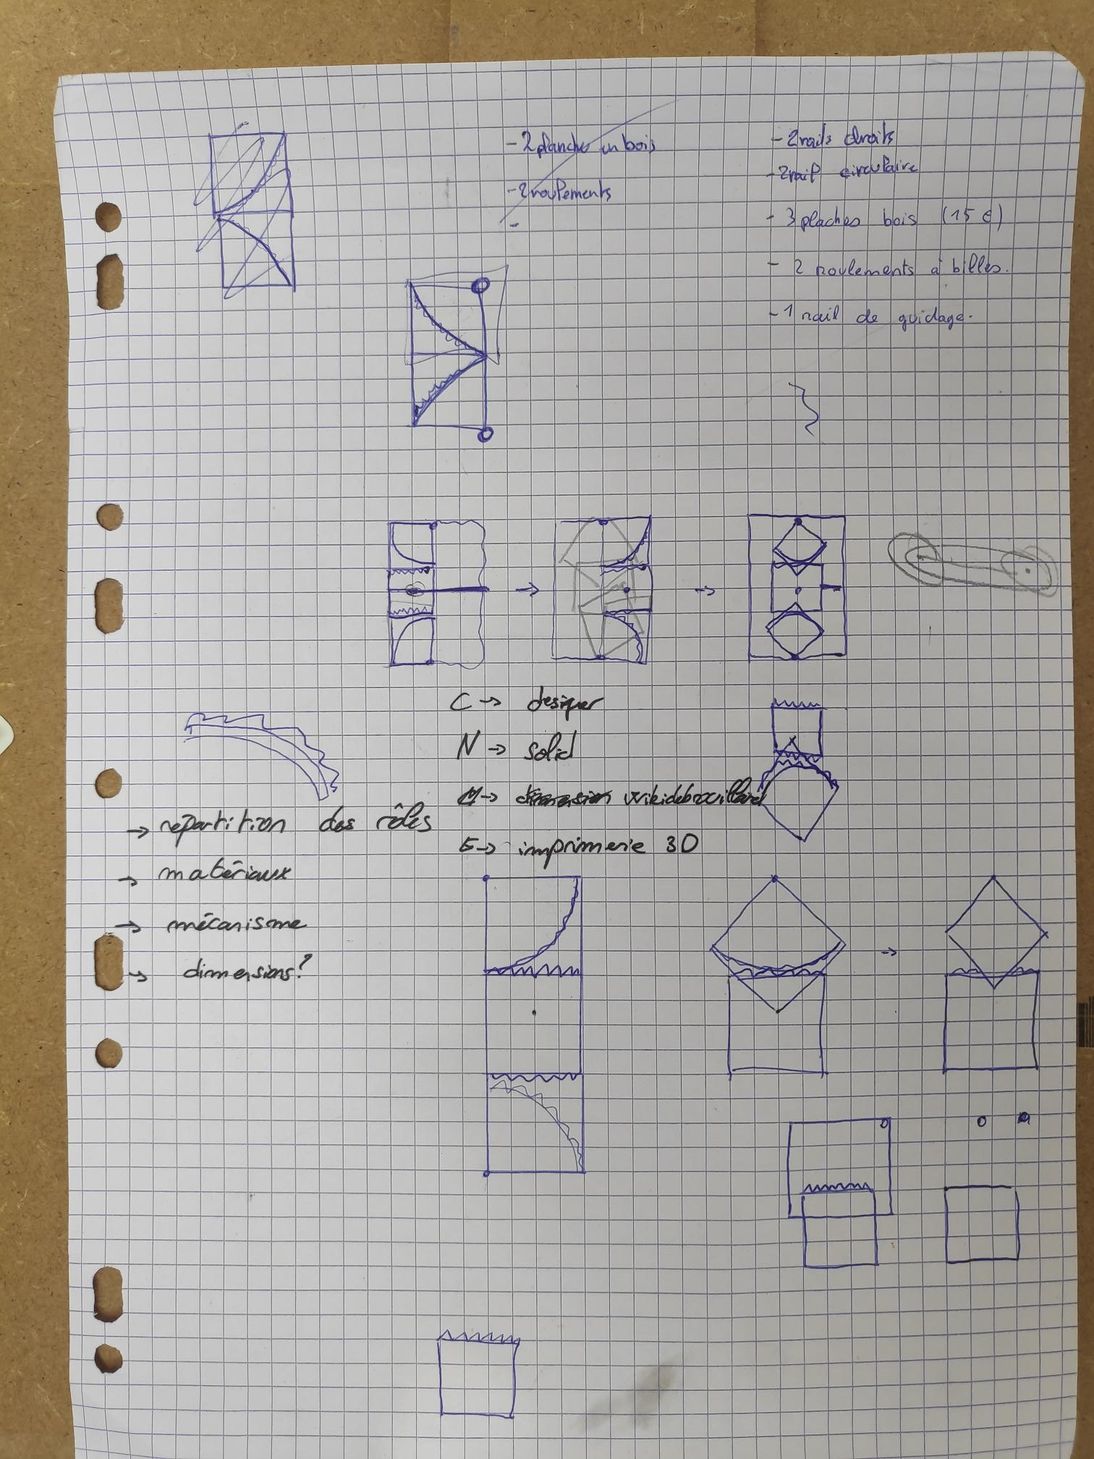 - 2 planche en bois
- 2 roulements
-
- 2 rails droits
- 2 rail circulaire
- 3 plaches bois (15 €)
- 2 roulements à billes.
- 1 rail de guidage.
C → desiper
N → solid
→ wikidebrouillard
E → imprimerie 3D
→ répartition des rôles
→ matériaux
→ mécanisme
→ dimensions?